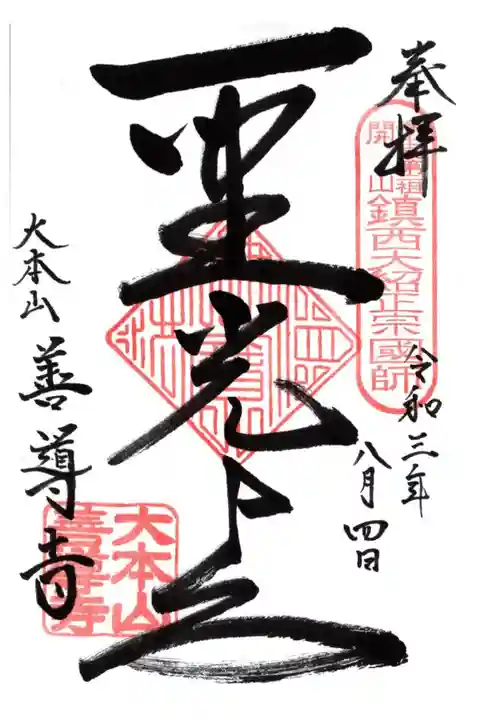 奉拝
開山
鎮西大紹正宗國師
令和三年
八月四日
聖光上人
大本山善導寺
大本山
善導寺